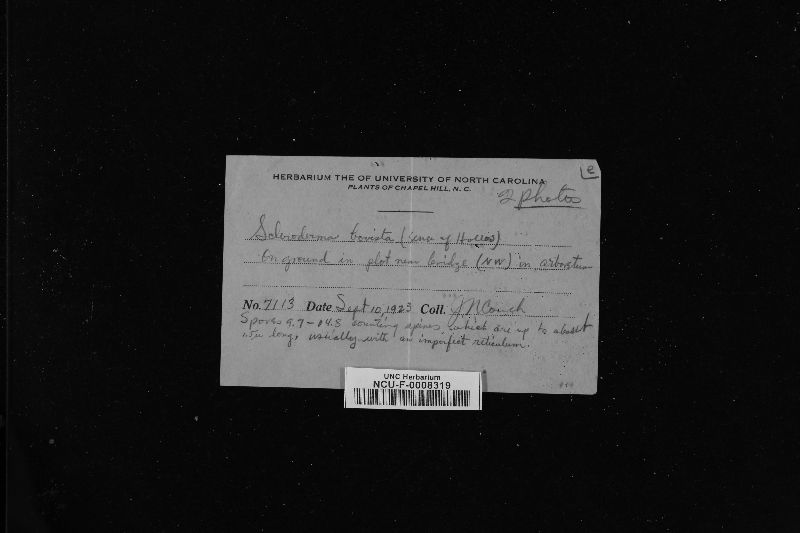 e
HERBARIUM THE OF UNIVERSITY OF NORTH CAROLINA
PLANTS OF CHAPEL HILL, N. C.
2 photos
Scleroderma bovista (sense of Hollos)
On ground in plot near bridge (NW) in arboretum
No. 7113 Date Sept 10, 1923 Coll. J N Couch
Spores 9.7-14.8 counting spines, which are up to about
long, usually with an imperfect reticulum.
UNC Herbarium
NCU-F-0008319